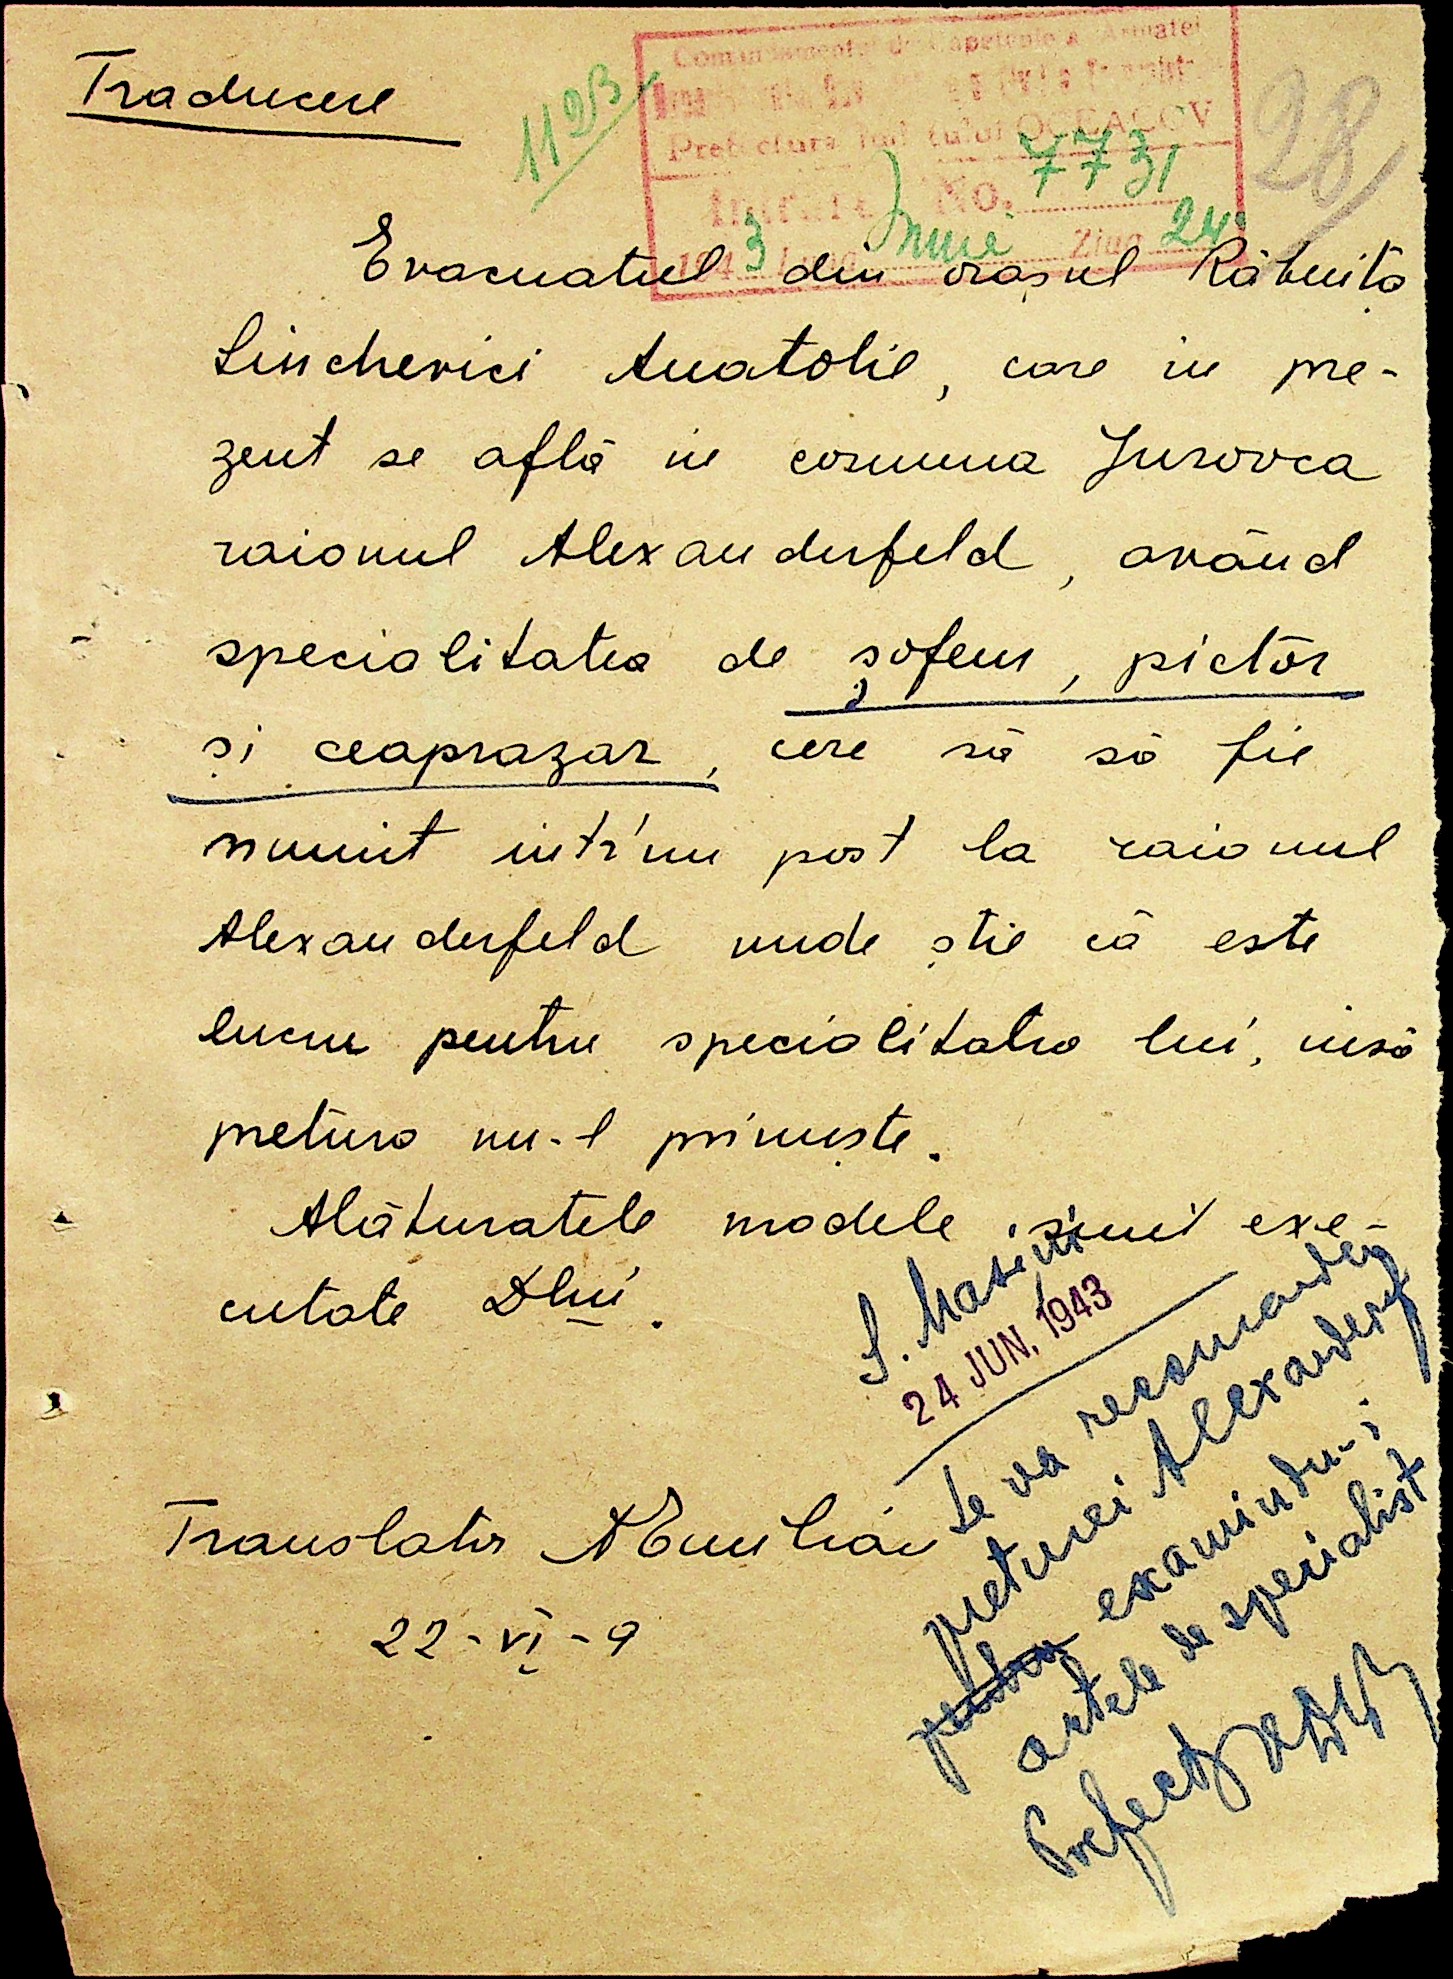 Traducere
1123
Comandamentul de Capetenie a Armatei
Prefectura Jud tului OCEACOV
Intrare No. 7731
1943 Luna Iunie Ziua 24
28
Evacuatul din orașul Râbnița
Lincherici Anatolie, care in pre-
zent se află in comuna Jurovca
raionul Alexanderfeld, având
specialitatea de șofeur, pictor
și ceaprazar, cere să să fie
numit intr'un post la raionul
Alexanderfeld unde știe că este
lucru pentru specialitatea lui, insă
pretura nu-l primește.
Alăturatele modele sint exe-
cutate Dlui.
S.
24 JUN. 1943
Se va recomanda
preturei Alexanderf
pentru examindu-i
actele de specialist
Prefect
Translator AEmilian
22-VI-9